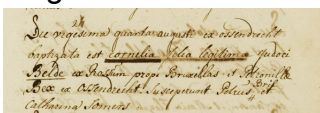 24
Die vigesima quarta augusti ex ossendrecht
baptizata est cornelia filia legitima Judoci
Belde ex Rossum prope Bruxellas et Petronillæ
Bex ex Ossendrecht. Susceperunt Petrus Brit et
Catharina Somers